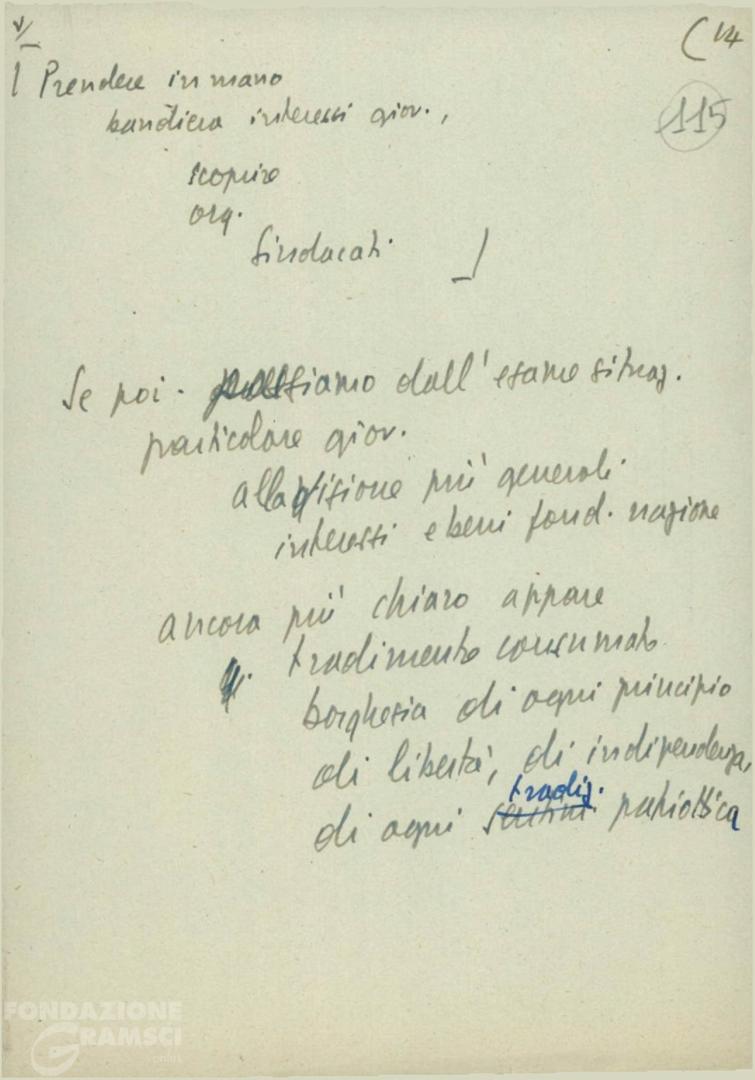 V/
(14
115
[ Prendere in mano
bandiera interessi giov.,
scoprire
org.
Sindacati ]
Se poi passiamo dall'esame situaz.
particolare giov.
alla visione più generali
interessi e beni fond. nazione
ancora più chiaro appare
tradimento consumato
borghesia di ogni principio
di libertà, di indipendenza,
tradiz.
di ogni sentim. patriottica
FONDAZIONE
GRAMSCI
onlus